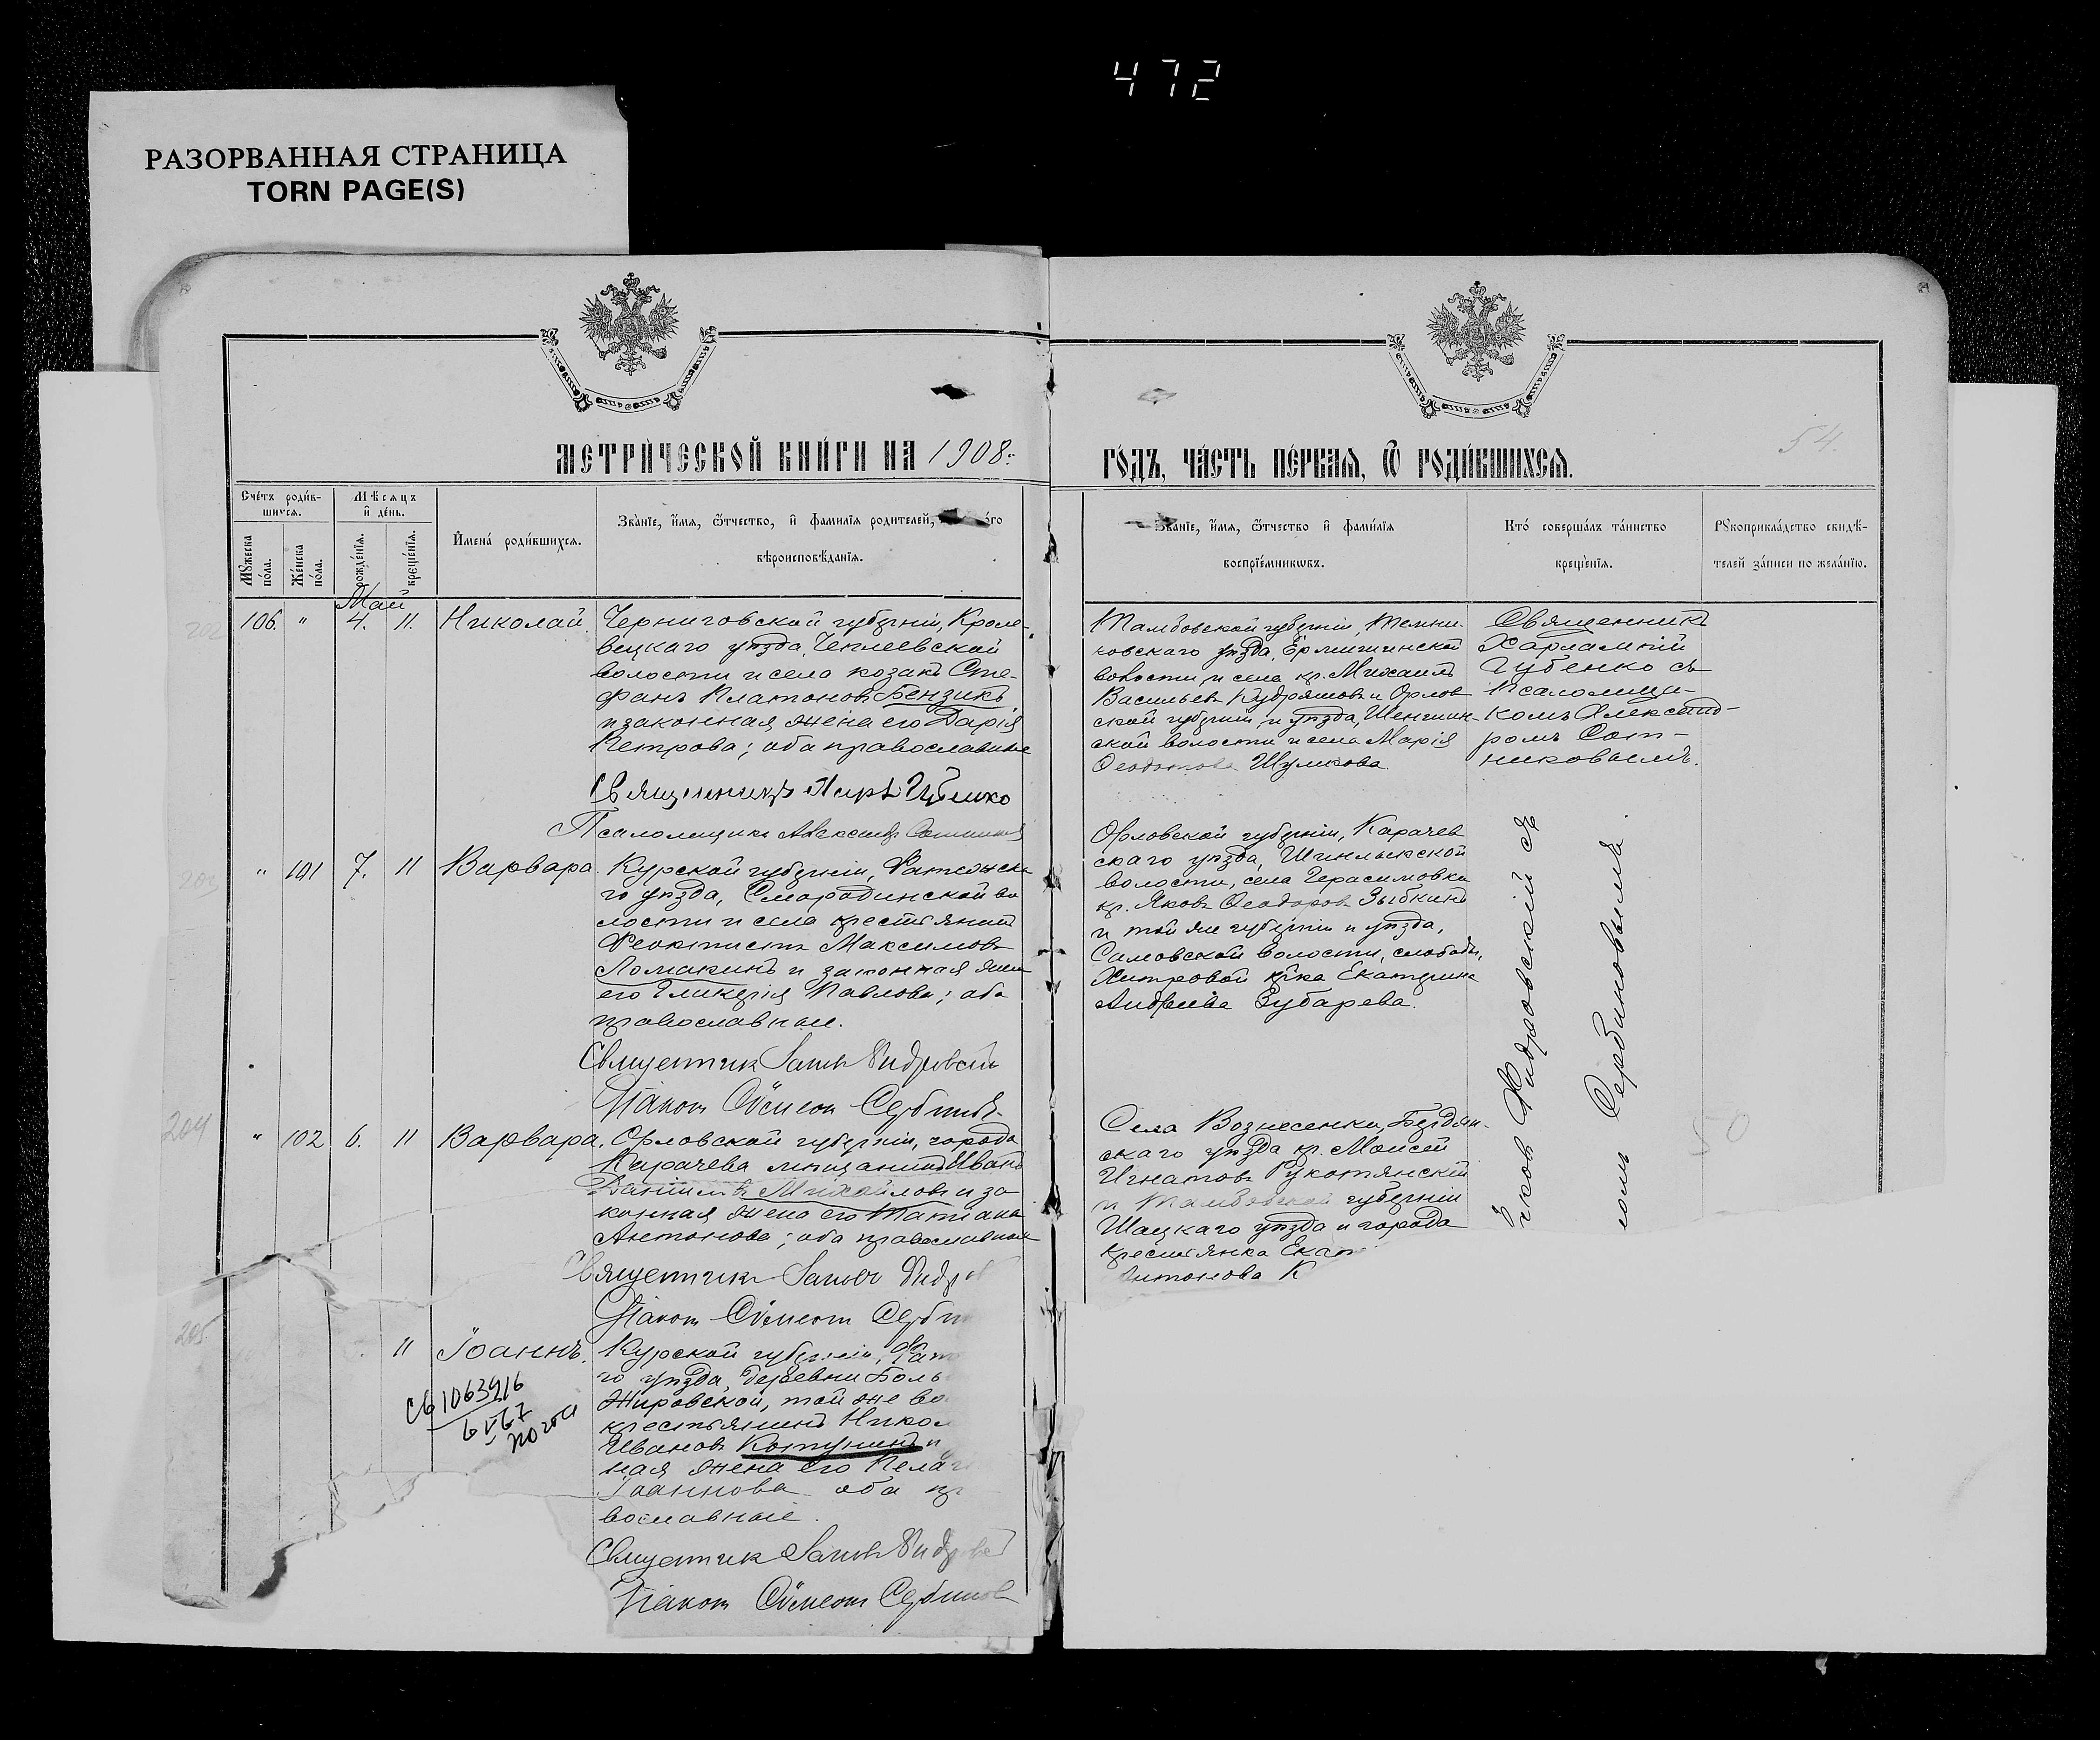 472
РАЗОРВАННАЯ СТРАНИЦА
TORN PAGE(S)
МЕТРИЧЕСКОЙ КНИГИ НА 1908
ГОДЪ, ЧАСТЬ ПЕРВАЯ, Ѡ РОДИВШИХСЯ.
54.
Счетъ родив-
шихся.
Мѣсяцъ
и день.
Мꙋжеска
пола.
Женска
пола.
рожденїя.
крещенїя.
Имена родившихся.
Званїе, имя, ѿчество, и фамилїя родителей,
вѣроисповѣданїя.
Званїе, имя, ѿчество и фамилїя
воспрїемникѡвъ.
Кто совершалъ таинство
крещенїя.
Рꙋкоприкладство свидѣ-
телей записи по желанїю.
Май
202
106. " 4. 11. Николай.
Черниговской губерніи, Кроле-
вецкаго уѣзда,
волости и села козакъ Сте-
фанъ Платоновъ Бензикъ
и законная жена его Дарія
Петрова; оба православные
Священникъ Харл. Губенко
Псаломщикъ Александръ
Тамбовской губерніи, Темни-
ковскаго уѣзда, Ермишинской
волости и села кр. Михаилъ
Васильевъ Кудряшовъ и Орлов
ской губерніи и уѣзда,
ской волости и села Марія
Ѳеодотова Шуликова.
Священникъ
Харлампій
Губенко съ
псаломщи-
комъ Александ-
ромъ Сот-
никовымъ.
203
" 101 7. 11 Варвара.
Курской губерніи,
го уѣзда, Смородинской во
лости и села крестьянинъ
Феоктистъ Максимовъ
Ломакинъ и законная жена
его Гликерія Павлова; оба
православные.
Священник
Діакон Сѵмеон
Орловской губерніи, Карачев
скаго уѣзда,
волости, села Герасимовки
кр. Яковъ Ѳеодоровъ Зыбкинъ
и той же губерніи и уѣзда,
волости, слободы
Хитровой кр-ка Екатерина
Андреева Зубарева.
204
" 102 6. 11 Варвара.
Орловской губерніи, города
Карачева мѣщанинъ Иванъ
Даніиловъ Михайловъ и за
конная жена его Татіана
Антонова; оба православные
Священник
Діакон Сѵмеон
Села Вознесенки, Бердян-
скаго уѣзда кр. Моисей
Игнатовъ
и Тамбовской губерніи
Шацкаго уѣзда и города
крестьянка Екат
Антонова К
Сербиновымъ
50
205
11 Іоаннъ.
Курской губерніи,
го уѣзда, деревни Боль
Жировской, той же во
крестьянинъ Никол
Ивановъ Котунинъ и
ная жена его Пела
Іоаннова оба пр
вославные.
Священник
Діакон Сѵмеон